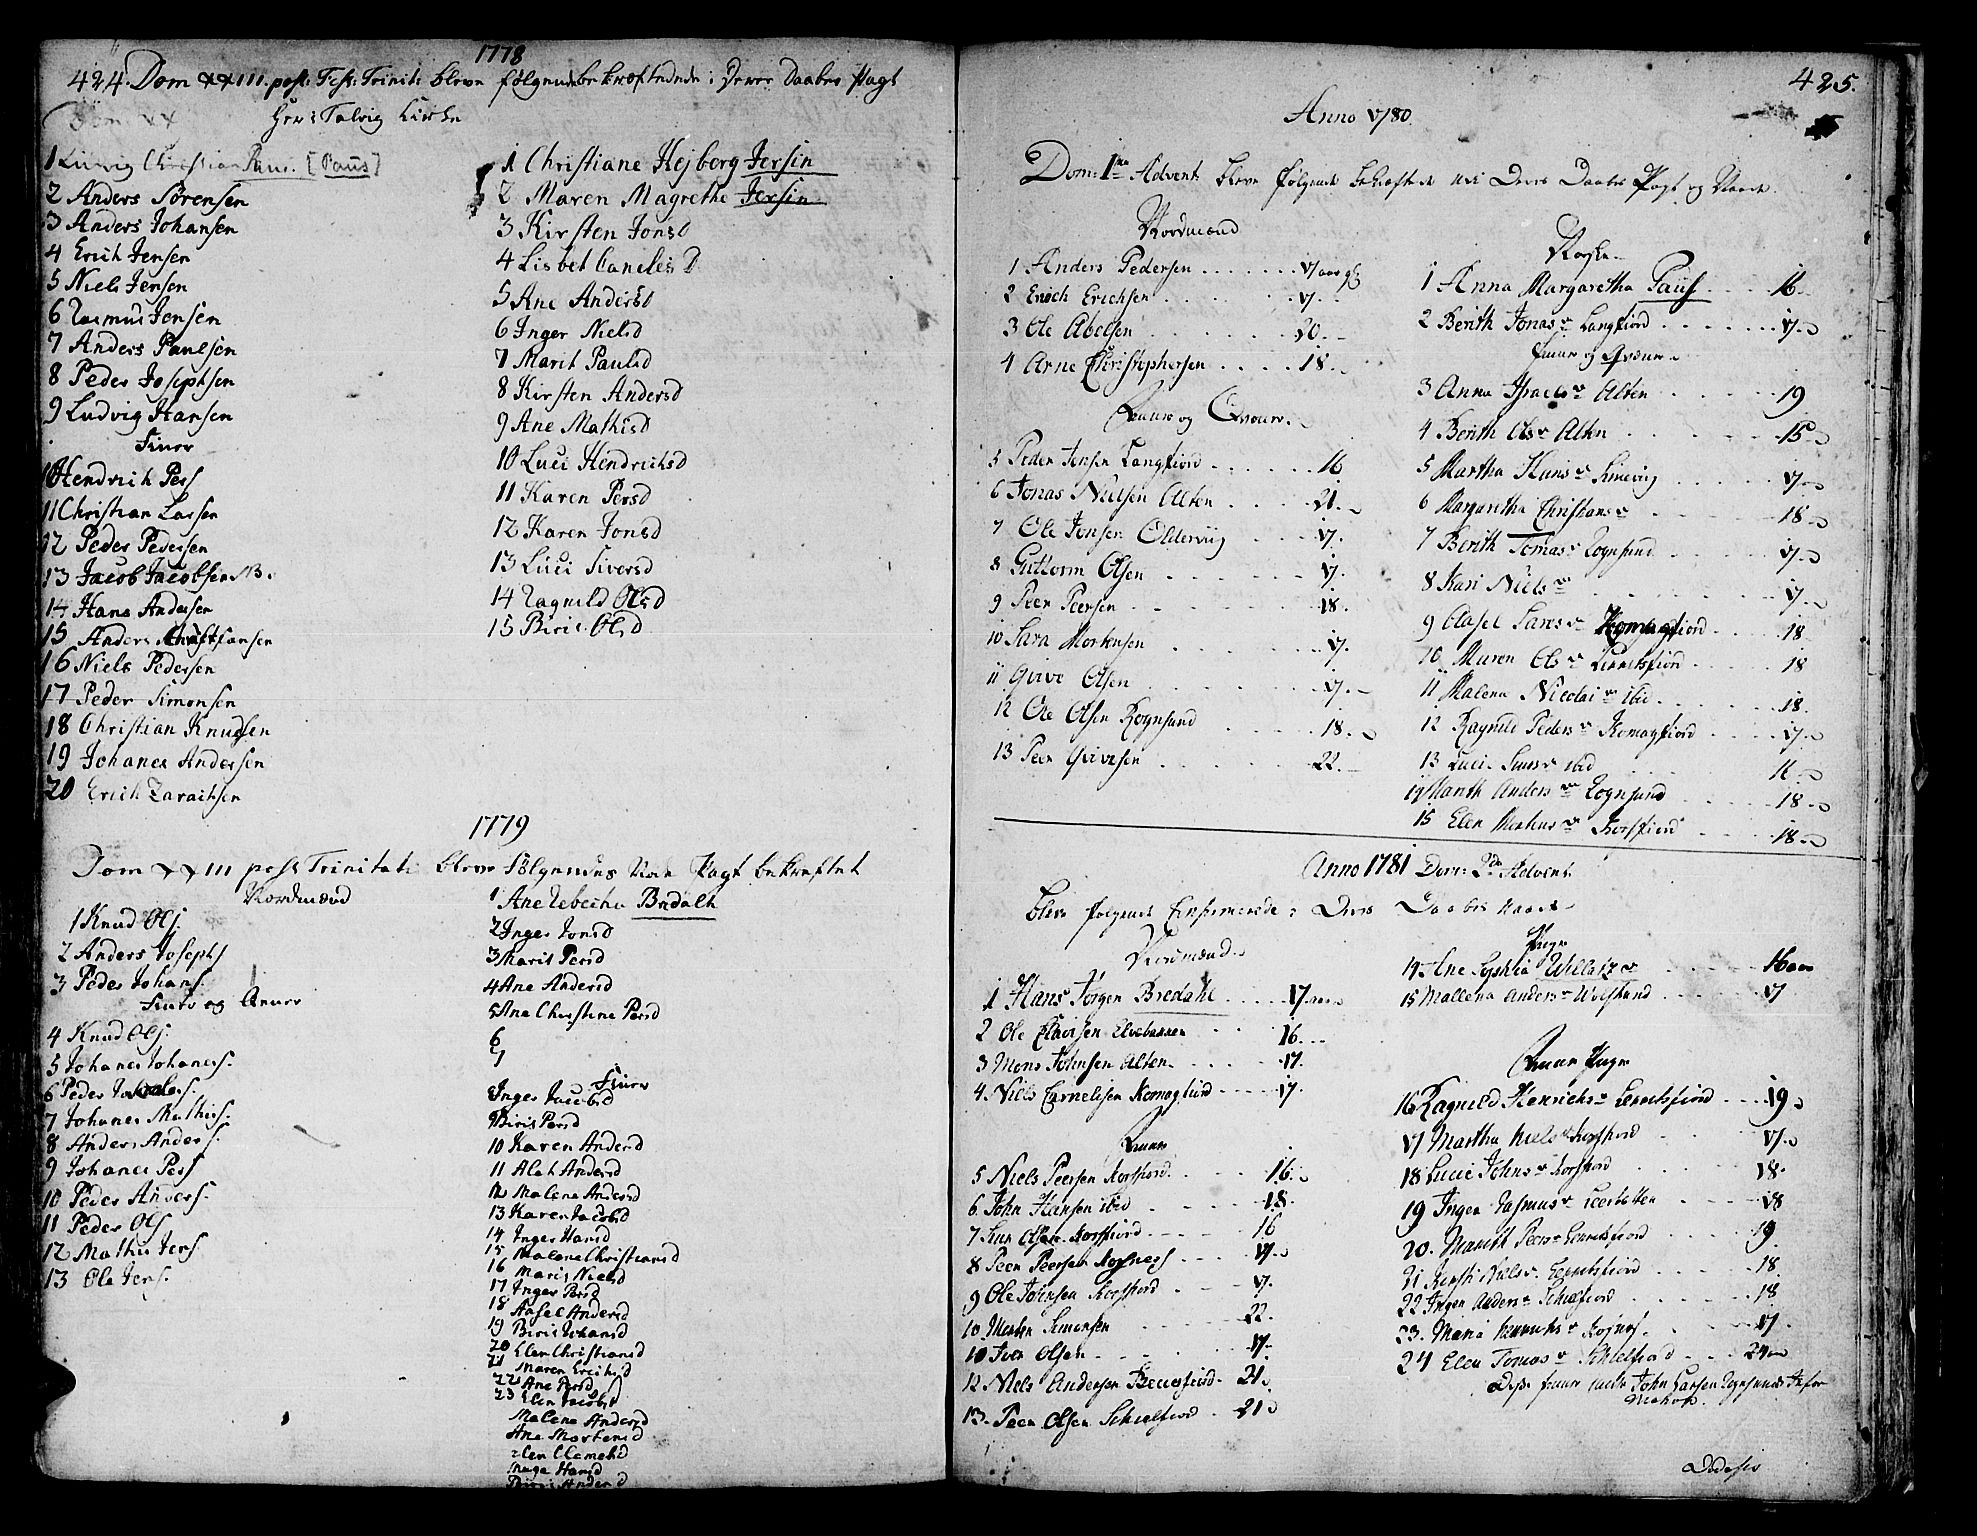 1778
424. Dom XXIII. post Fest: Trinit: bleve følgende bekræftede i Deres Daabes Pagt
Her i Talvig Kirke
Dom XX
1 Ludvig Christian Paus. [Paus]
2 Anders Sörensen
3 Anders Johansen
4 Erich Jensen
5 Niels Jensen
6 Rasmus Jensen
7 Anders Paulsen
8 Peder Josephsen
9 Ludvig Hansen
Finner
10 Hendrich Pers
11 Christian Larsen
12 Peder Pedersen
13 Jacob Jacobsen NB.
14 Hans Andersen
15 Anders Christiansen
16 Niels Pedersen
17 Peder Simonsen
18 Christian Knudsen
19 Johanes Andersen
20 Erich Zarachsen
1 Christiane Hejborg Jersin
2 Maren Magrethe Jersin
3 Kirsten Jonsd
4 Lisbet Caneles D
5 Ane Andersd
6 Inger Nielsd
7 Marit Paulsd
8 Kirsten Andersd
9 Ane Mathisd
10 Luci Hendrichsd
11 Karen Persd
12 Karen Jonsd
13 Luci Siversd
14 Ragnild Olsd
15 Biris Olsd
1779
Dom XXIII post Trinitati bleve Fölgendes Udi Pagt bekræftet
Nordmænd
1 Knud Ols.
2 Anders Josephs
3 Peder Johans.
Finner og Qvæner
4 Knud Ols.
5 Johanes Johaness.
6 Peder
7 Johanes Mathiss.
8 Anders Anders.
9 Johanes Pers
10 Peder Anders.
11 Peder Ols
12 Mathis Jens
13 Ole Jens.
1 Ane Rebecha Bredahl
2 Inger Jonsd
3 Marit Persd
4 Ane Andersd
5 Ane Christine Persd
6
7
Finner
8 Inger Jacobsd
9 Biris Persd
10 Karen Andersd
11 Aleh Andersd
12 Malene Andersd
13 Karen Jacobsd
14 Inger Hansd
15 Malene Christiansd
16 Maris Nielsd
17 Inger Persd
18 Aasel Andersd
19 Biris Johansd
20 Elen Christiansd
21 Maren Erichsd
22 Ane Persd
23 Elen Jacobsd
Malene Andersd
Ane Mortensd
Elen Clemetsd
Inga Hansd
Biris Andersd
425.
Anno 1780.
Dom: 1ma Advent bleve følgende bekræftede udi Deres Daabes Pagt og Naade.
Nordmænd
1 Anders Pedersen . . . . . . . 17 aar gl
2 Enoch Erichsen . . . . . . 17. -
3 Ole Abelsen . . . . . . . 20. -
4 Arne Christophersen . . . . 18. -
Finner og Qvæner.
5 Peder Jensen Langfiord . . . . . . 16
6 Jonas Nielsen Alten . . . . 21. -
7 Ole Jensen Oldervig . . . . 17.
8 Guttorm Olsen . . . . . . 17.
9 Peer Peersen . . . . . . . 18.
10 Sara Mortensen . . . . . . 17.
11 Qvive Olsen . . . . . . . 17. -
12 Ole Olsen Rognsund . . . . . 18. -
13 Peer Qvivesen . . . . . . 22. -
Norske
1 Anna Margaretha Paus . . . . 16 -
2 Berith Jonasdr Langfiord . . . . . . 17. -
Finner og Qvæner.
3 Anna Israelsdr Alten . . . . . . 19
4 Berith Olsdr Alten . . . . . . 15. -
5 Martha Hansdr . . . . 17. -
6 Margaretha Christensdr . . . . . 18. -
7 Berith Tomasdr Rognsund . . . . . 17. -
8 Kari Nielsdr . . . . . . . 17. -
9 Aasel Larsdr Komagfiord . . . . 18
10 Maren Olsdr Leerretsfiord . . . . . 18
11 Malena Nicolaidr ibid. . . . . . . 18.
12 Ragnild Pedersdr Komagfiord . . . . 17. -
13 Luci ibid . . . . . 16. -
14 Marith Andersdr Rognsund . . . . . 18. -
15 Elen Korsfiord . . . . . 18. -
Anno 1781 Dom: 2da Advent:
bleve følgende Confirmerede i Deres Daabes Naade.
Nordmænd.
1 Hans Jørgen Bredahl . . . . 17 aar
2 Ole Elvebakken . . 16. - -
3 Mons Johnsen Alten . . . . . 17.
4 Niels Cornelisen Komagfiord . . . . 17.
Finner
5 Niels Peersen Korsfiord . . . . 16. -
6 John Hansen ibid . . . . . 18.
7 Olsen Korsfiord . . . . 16
8 Peer Peersen . . . 17. -
9 Ole Johnsen Korsfiord . . 17.
10. Morten Simonsen . . . . . 22.
10 Iver Olsen . . . . . . . . 17. -
12 Niels Andersen . 21.
13. Peer Olsen Schielfiord . 21.
Piger
14 Ane Sophia Willatzdr . . . . . 16 aar
15 Mallena Andersdr . . . . . 17
Finner Piger
16 Ragnild Henrichsdr Leerretsfiord . . . . 19. -
17 Martha Nielsdr Korsfiord . . . . 17. -
18 Lucie Johnsdr Korsfiord . . . . . 18.
19 Inger Rasmusdr . . . . 18
20. Marith Peersdr Leerretsfiord . . . . 19.
21 Kirsti Nielsdr. Leerretsfiord . . . . . 18
22 Inger Andersdr Schielfiord . . . . . . 18
23. Maria Henrichsdr . . . . . 17.
24 Elen Tomasdr Schielfiord . . . 24 aar
Disse Finner John Larsen
Dödes